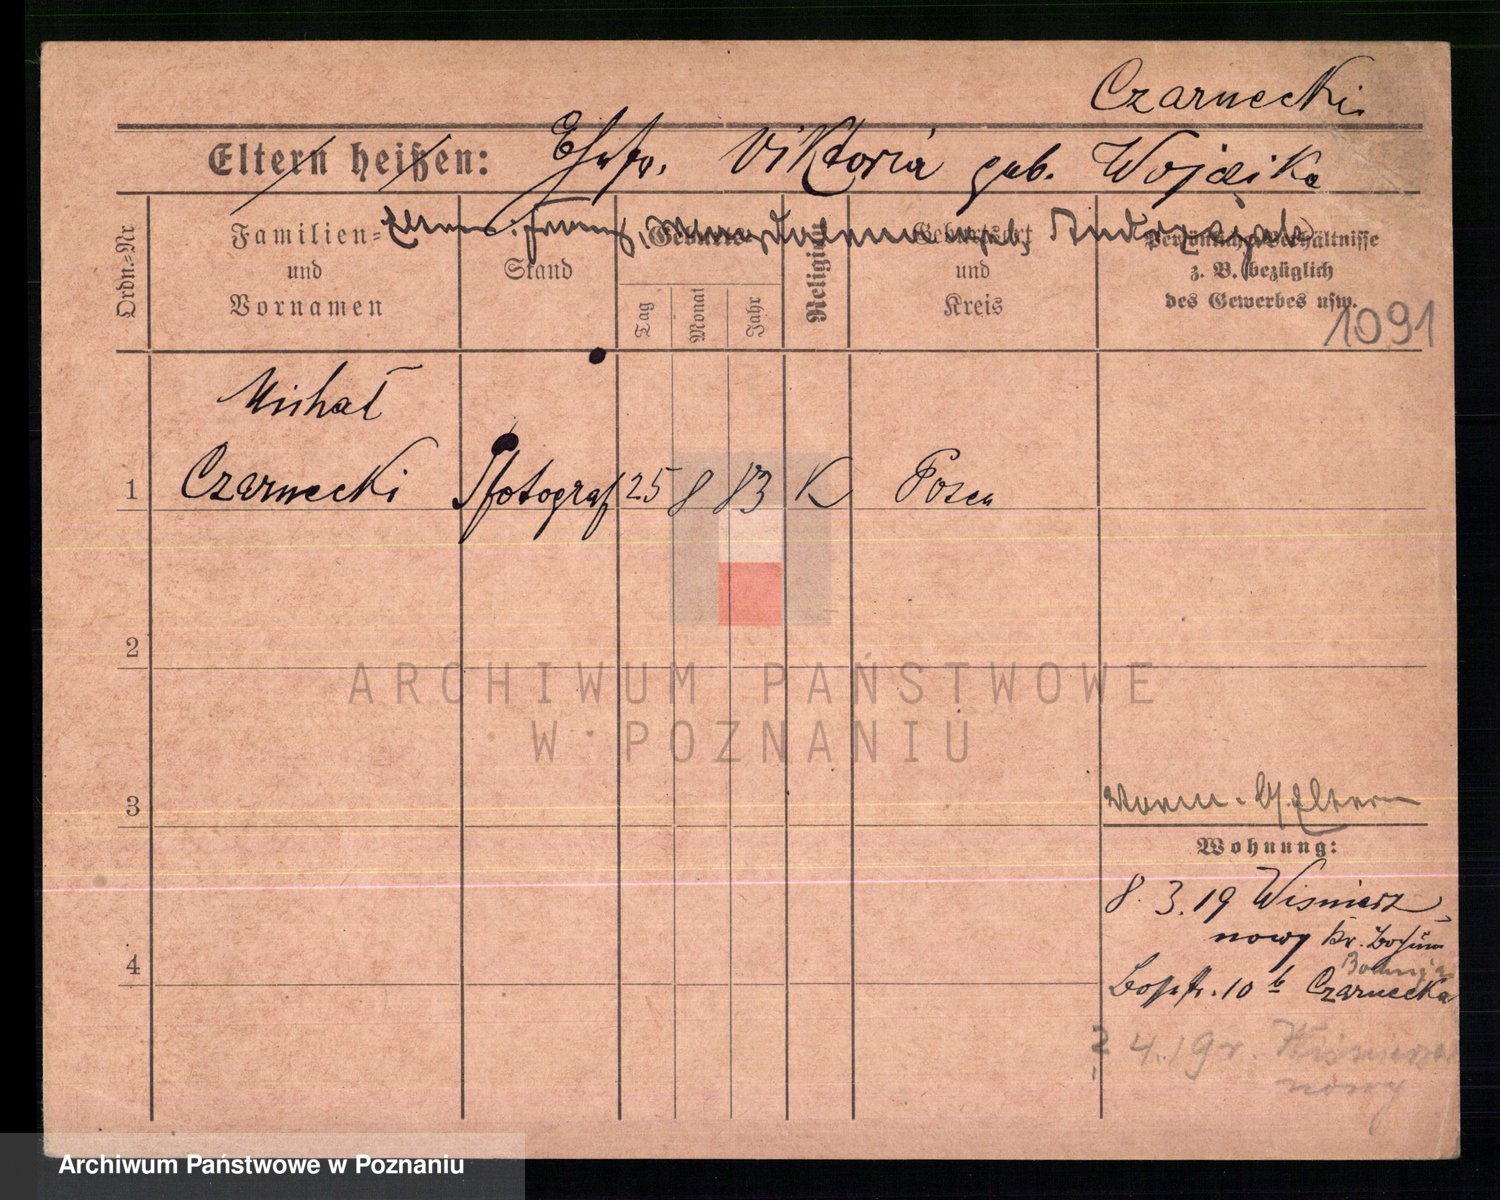 Czarnecki
Eltern heißen: Ehefr. Viktoria geb. Wojcik
Eltern: Franz, geb. Andrzejak
Ordn.-Nr
Familien-
und
Vornamen
Stand
Geburts-
Tag
Monat
Jahr
Religion
Geburtsort
und
Kreis
Persönliche Verhältnisse
z. B. bezüglich
des Gewerbes usw.
1091
Michał
1 Czarnecki Pfotograf 25 8 83 K Posen
2
ARCHIWUM PAŃSTWOWE
W POZNANIU
3
Wohnung:
8. 3. 19 Wisnierz
nowy Kr. Bochnia
Bochnia
4
10 b Czarnecka
? 4. 19 r. Wiśnierz
nowy
Archiwum Państwowe w Poznaniu